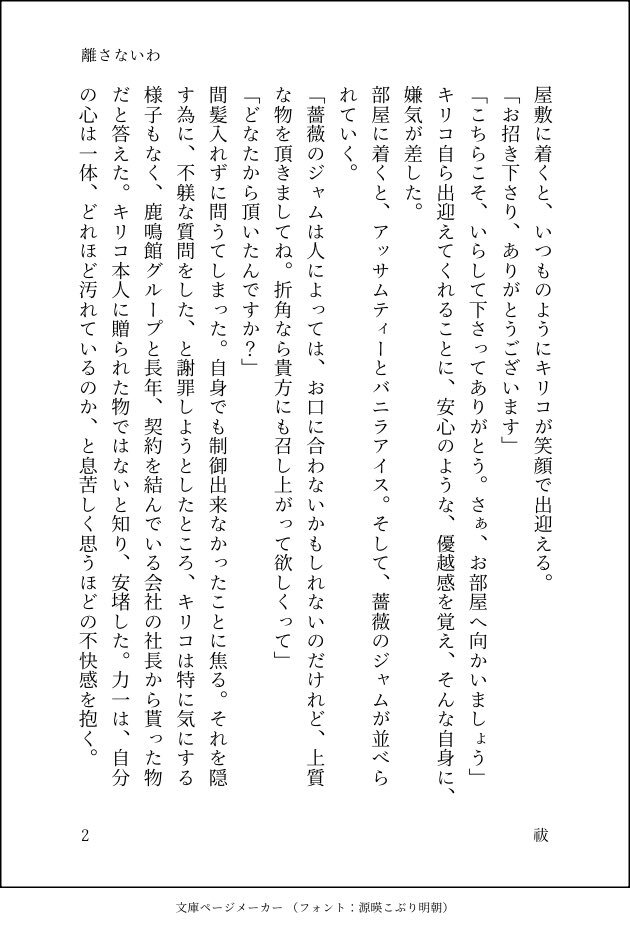 離さないわ
屋敷に着くと、いつものようにキリコが笑顔で出迎える。
「お招き下さり、ありがとうございます」
「こちらこそ、いらして下さってありがとう。さぁ、お部屋へ向かいましょう」
キリコ自ら出迎えてくれることに、安心のような、優越感を覚え、そんな自身に、
嫌気が差した。
部屋に着くと、アッサムティーとバニラアイス。そして、薔薇のジャムが並べら
れていく。
「薔薇のジャムは人によっては、お口に合わないかもしれないのだけれど、上質
な物を頂きましてね。折角なら貴方にも召し上がって欲しくって」
「どなたから頂いたんですか？」
間髪入れずに問うてしまった。自身でも制御出来なかったことに焦る。それを隠
す為に、不躾な質問をした、と謝罪しようとしたところ、キリコは特に気にする
様子もなく、鹿鳴館グループと長年、契約を結んでいる会社の社長から貰った物
だと答えた。キリコ本人に贈られた物ではないと知り、安堵した。力一は、自分
の心は一体、どれほど汚れているのか、と息苦しく思うほどの不快感を抱く。
祓
2
文庫ページメーカー（フォント：源暎こぶり明朝）